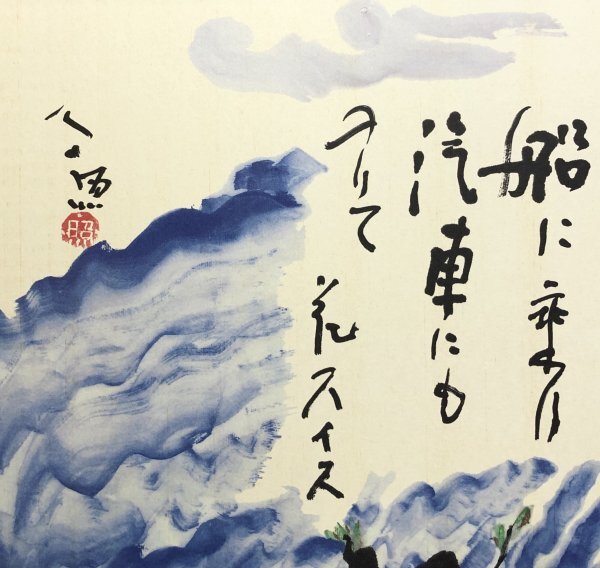 船に乗り
汽車にも
のりて 花スイス
公照
照